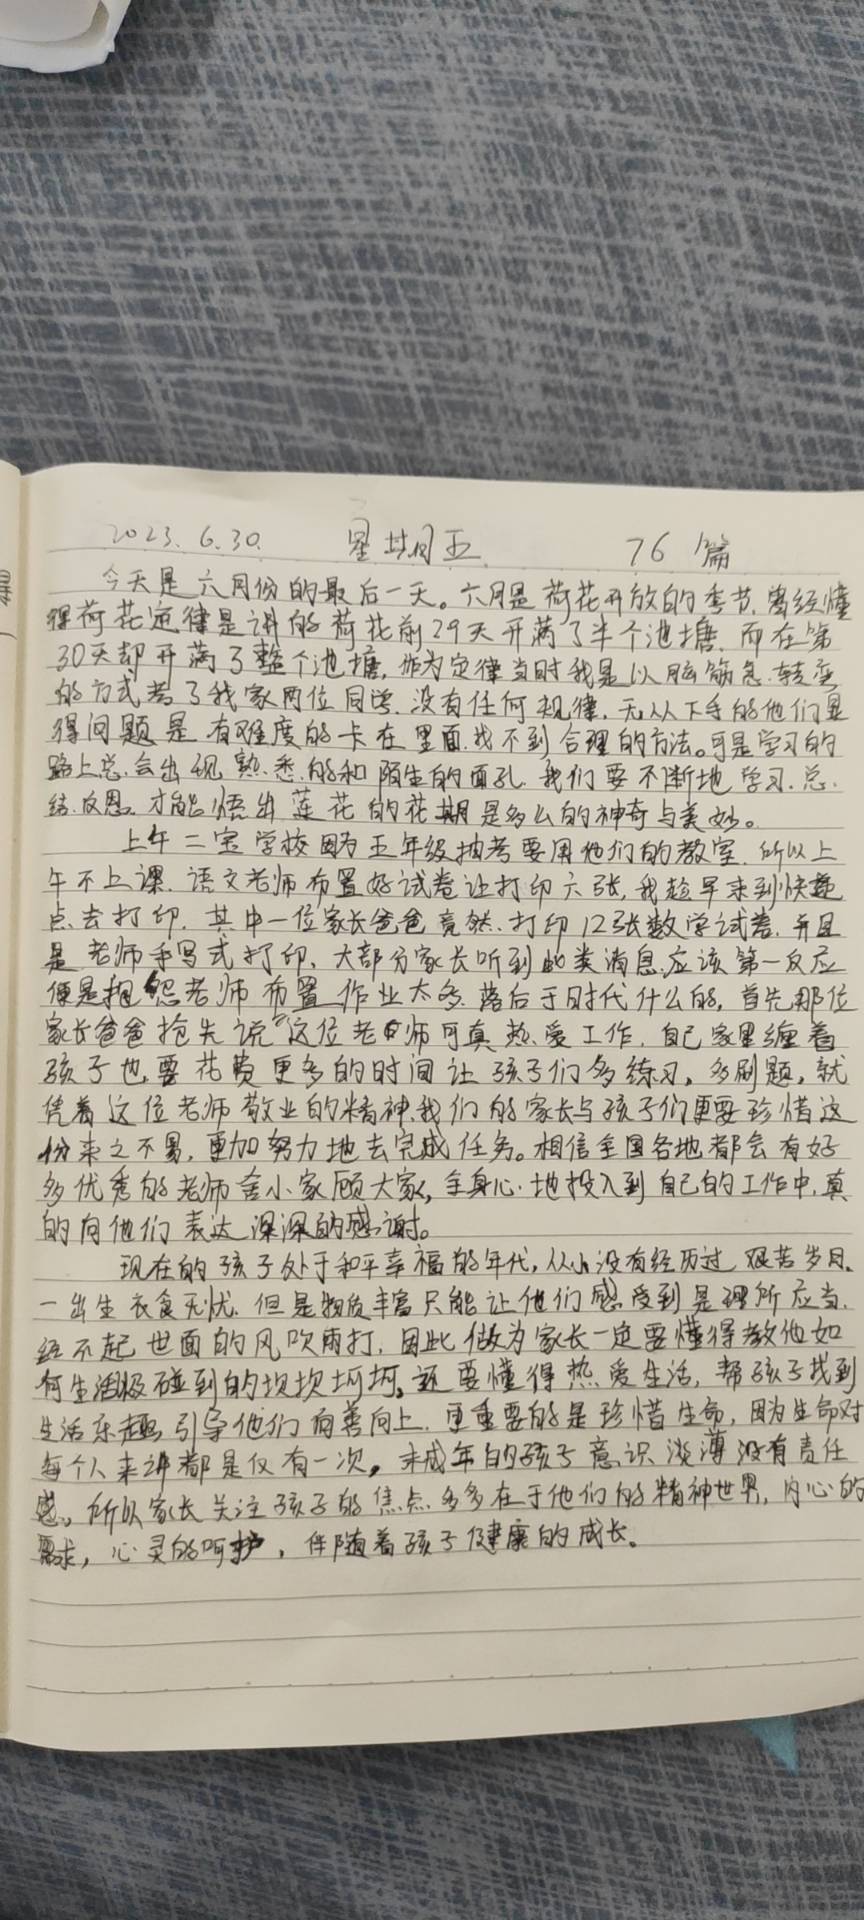 2023.6.30. 星期五 76篇
今天是六月份的最后一天。六月是荷花开放的季节,曾经懂
得荷花定律是讲的荷花前29天开满了半个池塘,而在第
30天却开满了整个池塘,作为定律当时我是以脑筋急转弯
的方式考了我家两位同学,没有任何规律,无从下手的他们显
得问题是有难度的卡在里面,找不到合理的方法。可是学习的
路上总会出现熟悉的和陌生的面孔,我们要不断地学习.总
结.反思.才能悟出莲花的花期是多么的神奇与美妙。
上午二宝学校因为五年级抽考要用他们的教室,所以上
午不上课,语文老师布置好试卷让打印六张,我趁早来到快递
点去打印,其中一位家长爸爸竟然打印12张数学试卷,并且
是老师手写式打印,大部分家长听到此类消息,应该第一反应
便是抱怨老师布置作业太多,落后于时代什么的,首先那位
家长爸爸抢先说“这位老师可真热爱工作,自己家里缠着
孩子也要花费更多的时间让孩子们多练习,多刷题,就
凭着这位老师敬业的精神,我们的家长与孩子们更要珍惜这
份来之不易,更加努力地去完成任务。相信全国各地都会有好
多优秀的老师舍小家顾大家,全身心地投入到自己的工作中,真
的向他们表达深深的感谢。
现在的孩子处于和平幸福的年代,从小没有经历过艰苦岁月,
一出生衣食无忧,但是物质丰富只能让他们感受到是理所应当,
经不起世面的风吹雨打,因此做为家长一定要懂得教他如
何生活极碰到的坎坎坷坷,还要懂得热爱生活,帮孩子找到
生活乐趣,引导他们向善向上,更重要的是珍惜生命,因为生命对
每个人来讲都是仅有一次,未成年的孩子意识淡薄没有责任
感,所以家长关注孩子的焦点多多在于他们的精神世界,内心的
需求,心灵的呵护,伴随着孩子健康的成长。